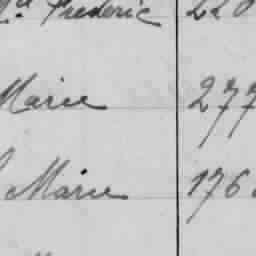 Frederic 220
Marie 277
Marie 176